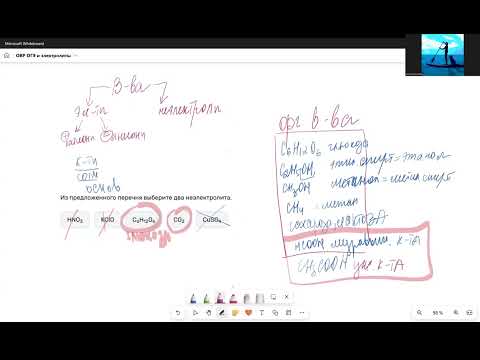 Microsoft Whiteboard
ОВР ОГЭ и электролиты
В-ва
Эл-ты
неэлектролиты
Катионы Анионы
к-ты
соли
основ
Из предложенного перечня выберите два неэлектролита.
HNO₃ KClO C₆H₁₂O₆ CO₂ CuSO₄
орг в-ва
C₆H₁₂O₆ глюкоза
C₂H₅OH этил спирт=этанол
CH₃OH метанол=метил спирт
CH₄ - метан
сахароза
HCOOH муравьин. к-та
CH₃COOH укс. к-та
98 %